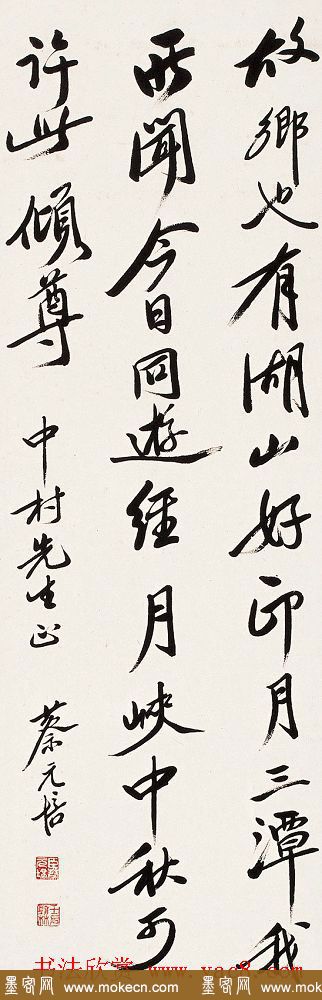 故鄉也有湖山好印月三潭我
所聞今日同遊經月峽中秋可
許此傾尊
中村先生正
蔡元培
书法欣赏 www.yac8.com
墨客网 www.mokecn.com 墨客网 www.mokecn.com